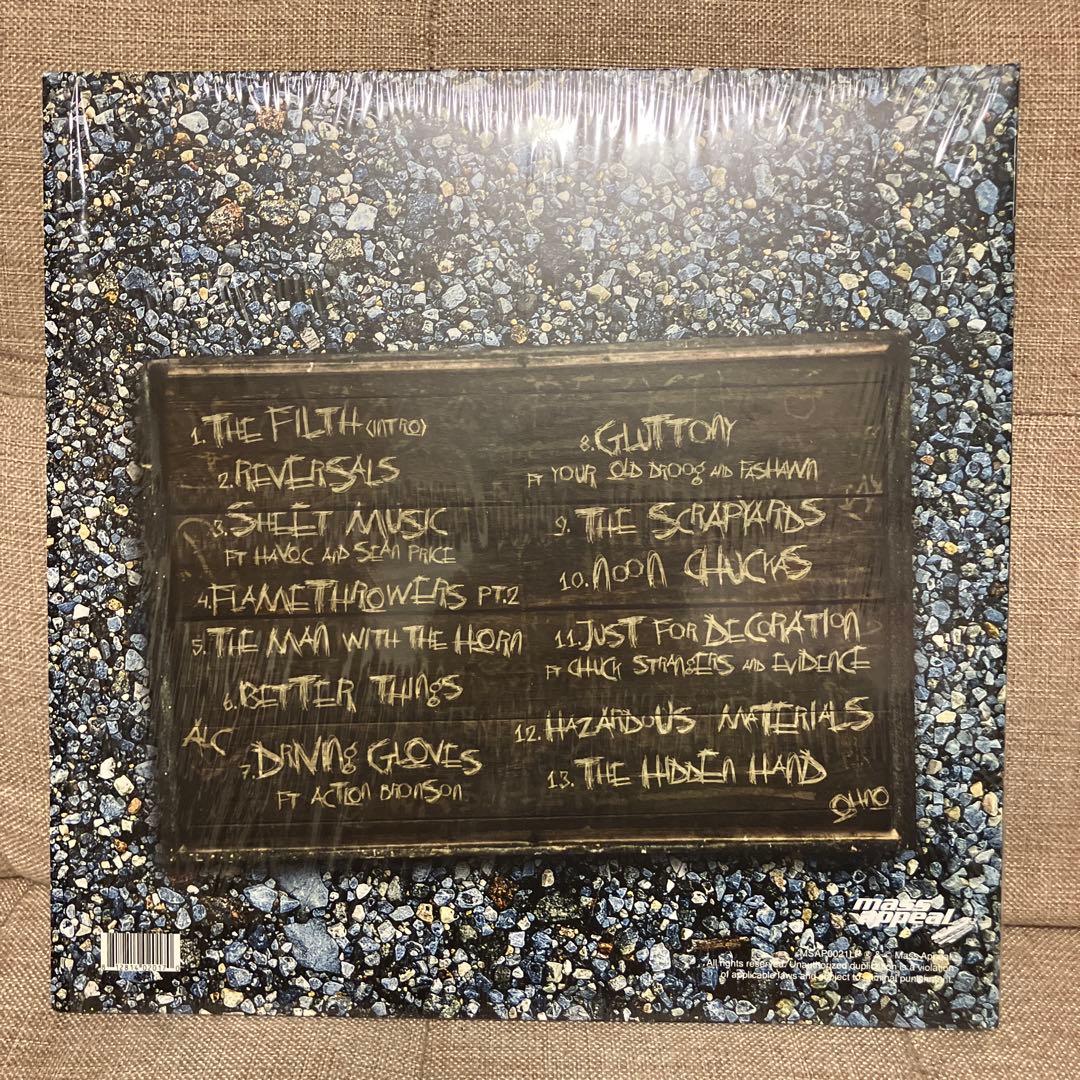 1. THE FILTH (INTRO)
2. REVERSALS
3. SHEET MUSIC
FT HAVOC AND SEAN PRICE
4. FLAMETHROWERS PT.2
5. THE MAN WITH THE HORN
6. BETTER THINGS
ALC
7. DRIVING GLOVES
FT ACTION BRONSON
8. GLUTTONY
FT YOUR OLD DROOG AND FASHAWN
9. THE SCRAPYARDS
10. NOON CHUCKAS
11. JUST FOR DECORATION
FT CHUCK STRANGERS AND EVIDENCE
12. HAZARDOUS MATERIALS
13. THE HIDDEN HAND
OHNO
mass
appeal
MSAP0021LP ℗ & © Mass Appeal.
All rights reserved. Unauthorized duplication is a violation
of applicable laws and subject to criminal punishment.